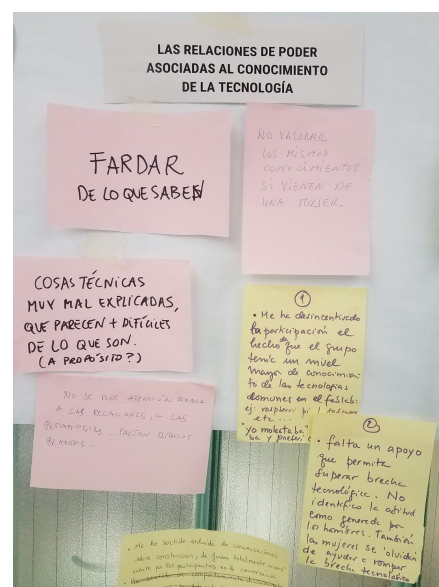 LAS RELACIONES DE PODER
ASOCIADAS AL CONOCIMIENTO
DE LA TECNOLOGÍA
FARDAR
DE LO QUE SABEN
NO VALORAR
LOS MISMOS
CONOCIMIENTOS
SI VIENEN DE
UNA MUJER.
COSAS TÉCNICAS
MUY MAL EXPLICADAS,
QUE PARECEN + DIFÍCILES
DE LO QUE SON.
(A PROPÓSITO?)
①
• Me ha desincentivado
la participación el
hecho de que el grupo
tenía un nivel
mayor de conocimien
to de las tecnologías
comunes en el fablab:
ej: raspberri pi
etc
"yo molestaba"
ba y preferí
NO SE PONE ATENCIÓN
A LAS RELACIONES, A LAS
PEDAGOGÍAS. FALTAN
②
• falta un apoyo
que permita
superar brecha
tecnológica. No
identifico la actitud
como generada por
los hombres. También
las mujeres se 'olvidan'
de ayudar a romper
la brecha tecnológica
• Me he sentido excluida de conversaciones
sobre construccion, de forma totalmente
por los participantes en la conversación